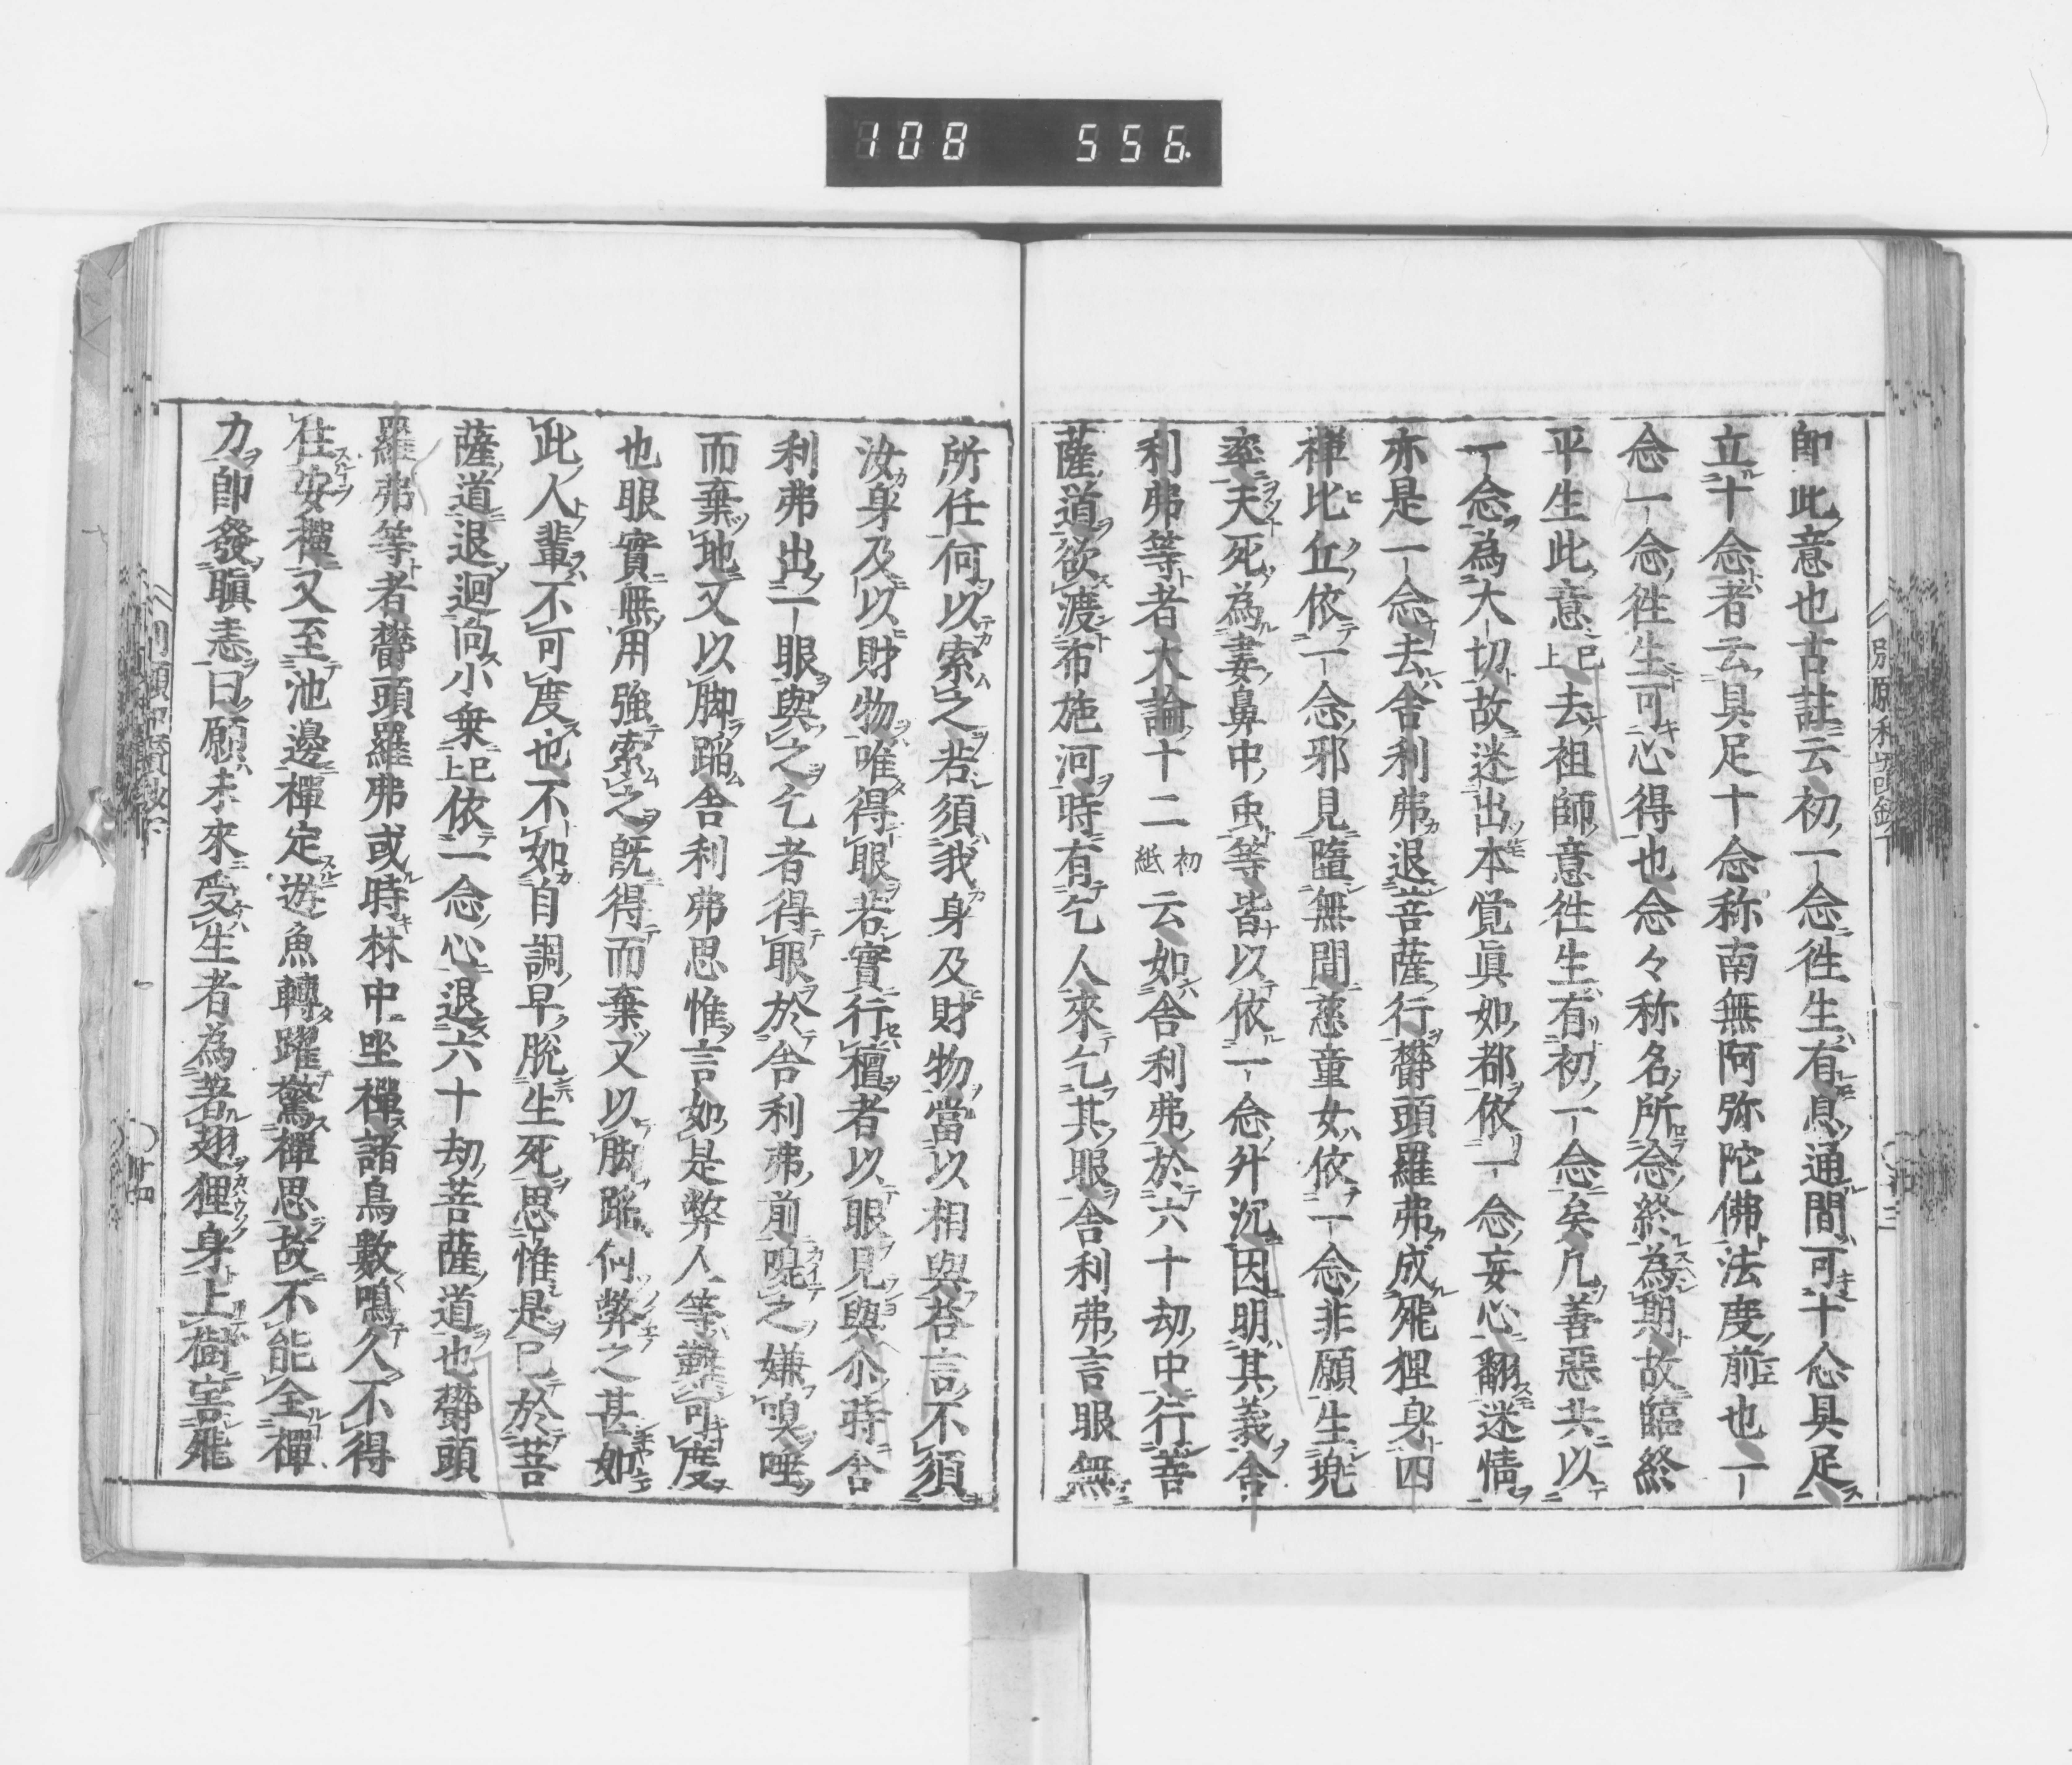 108 556.
即此意也古註云初一念徃生有息通間可十念具足
立十念者云具足十念称南無阿弥陀佛法度前也一
念一念徃生可心得也念々称名所念終為期故臨終
平生此意已上去祖師意徃生有初一念矣凡善惡共以
一念為大切故迷出本覚眞如都依一念妄心翻迷情
亦是一念去舎利弗退菩薩行欝頭羅弗成飛狸身四
禅比丘依一念邪見墮無間慈童女依一念非願生兜
率天死為妻鼻中虫等皆以依一念升沉因明其義舎
利弗等者大論十二初紙云如舎利弗於六十劫中行菩
薩道欲渡布施河時有乞人來乞其眼舎利弗言眼無
別願和
所任何以索之若須我身及財物當以相與荅言不須
汝身及以財物唯得眼若實行檀者以眼見與尒時舎
利弗出一眼與之乞者得眼於舎利弗前嗅之嫌唾
而棄地又以脚蹈舎利弗思惟言如是弊人等難可度
也眼實無用強索之既得而棄又以脚蹈何弊之甚如
此人輩不可度也不如自調早脱生死思惟是已於菩
薩道退迴向小乗已上依一念心退六十劫菩薩道也欝頭
羅弗等者欝頭羅弗或時林中坐禪諸鳥數鳴久不得
住安禪又至池邊禪定遊魚轉躍驚禪思故不能全禪
力即發瞋恚曰願未來受生者為著翅狸身上樹害飛
廿四